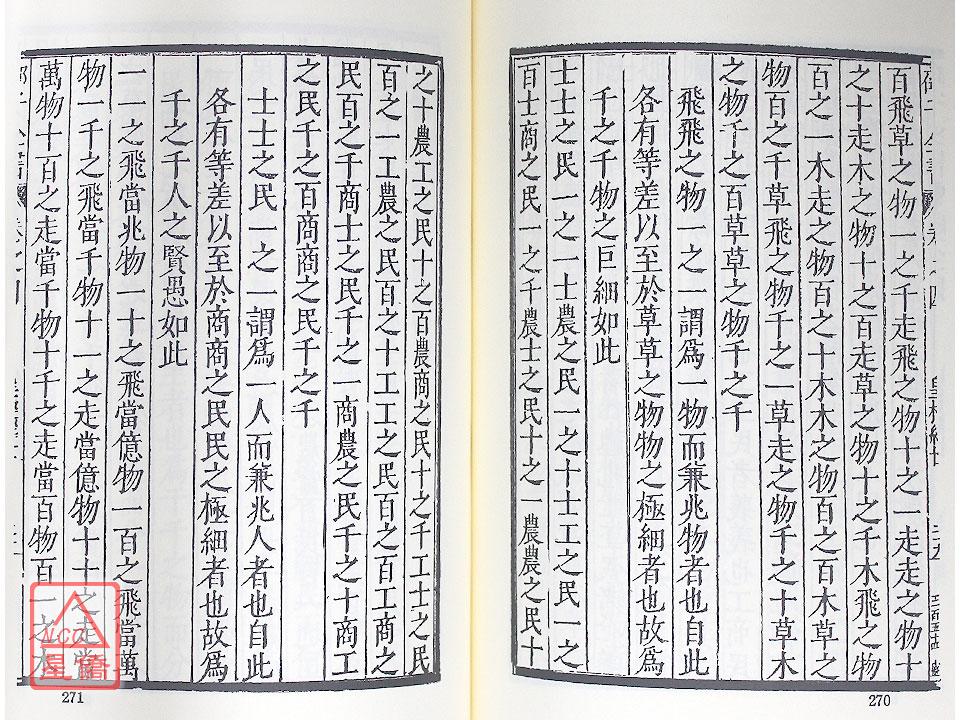 百飛草之物一之千走飛之物十之一走走之物十
之十走木之物十之百走草之物十之千木飛之物
百之一木走之物百之十木木之物百之百木草之
物百之千草飛之物千之一草走之物千之十草木
之物千之百草草之物千之千
飛飛之物一之一謂爲一物而兼兆物者也自此
各有等差以至於草草之物物之極細者也故爲
千之千物之巨細如此
士士之民一之一士農之民一之十士工之民一之
百士商之民一之千農士之民十之一農農之民十
270
之十農工之民十之百農商之民十之千工士之民
百之一工農之民百之十工工之民百之百工商之
民百之千商士之民千之一商農之民千之十商工
之民千之百商商之民千之千
士士之民一之一謂爲一人而兼兆人者也自此
各有等差以至於商商之民民之極細者也故爲
千之千人之賢愚如此
一一之飛當兆物一十之飛當億物一百之飛當萬
物一千之飛當千物十一之走當億物十十之走當
萬物十百之走當千物十千之走當百物百一之木
271
NCC
星僑